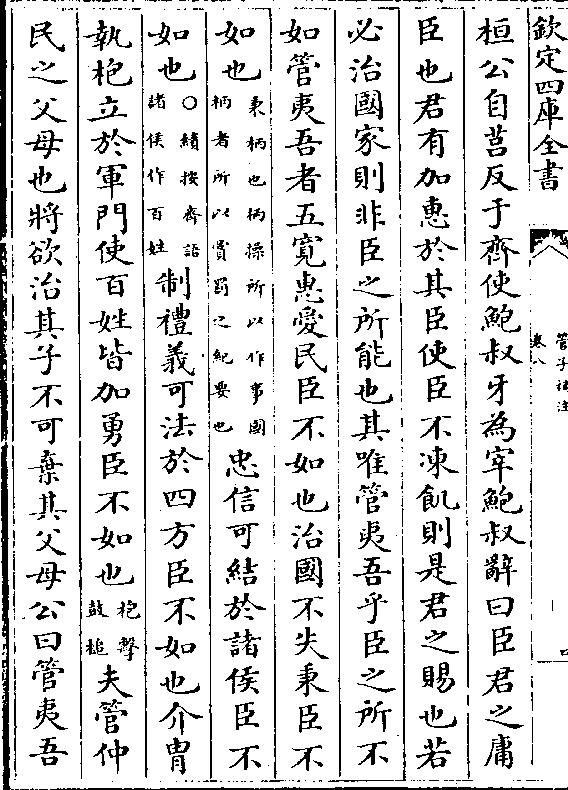 欽定四庫全書
管子補注
卷八
桓公自莒反于齊使鮑叔牙為宰鮑叔辭曰臣君之庸
臣也君有加惠於其臣使臣不凍飢則是君之賜也若
必治國家則非臣之所能也其唯管夷吾乎臣之所不
如管夷吾者五寛惠愛民臣不如也治國不失秉臣不
如也秉柄也柄操所以作事國柄者所以賞罰之紀要也忠信可結於諸侯臣不
如也○績按齊語諸侯作百姓制禮義可法於四方臣不如也介胄
執枹立於軍門使百姓皆加勇臣不如也枹擊鼓槌夫管仲
民之父母也將欲治其子不可棄其父母公曰管夷吾